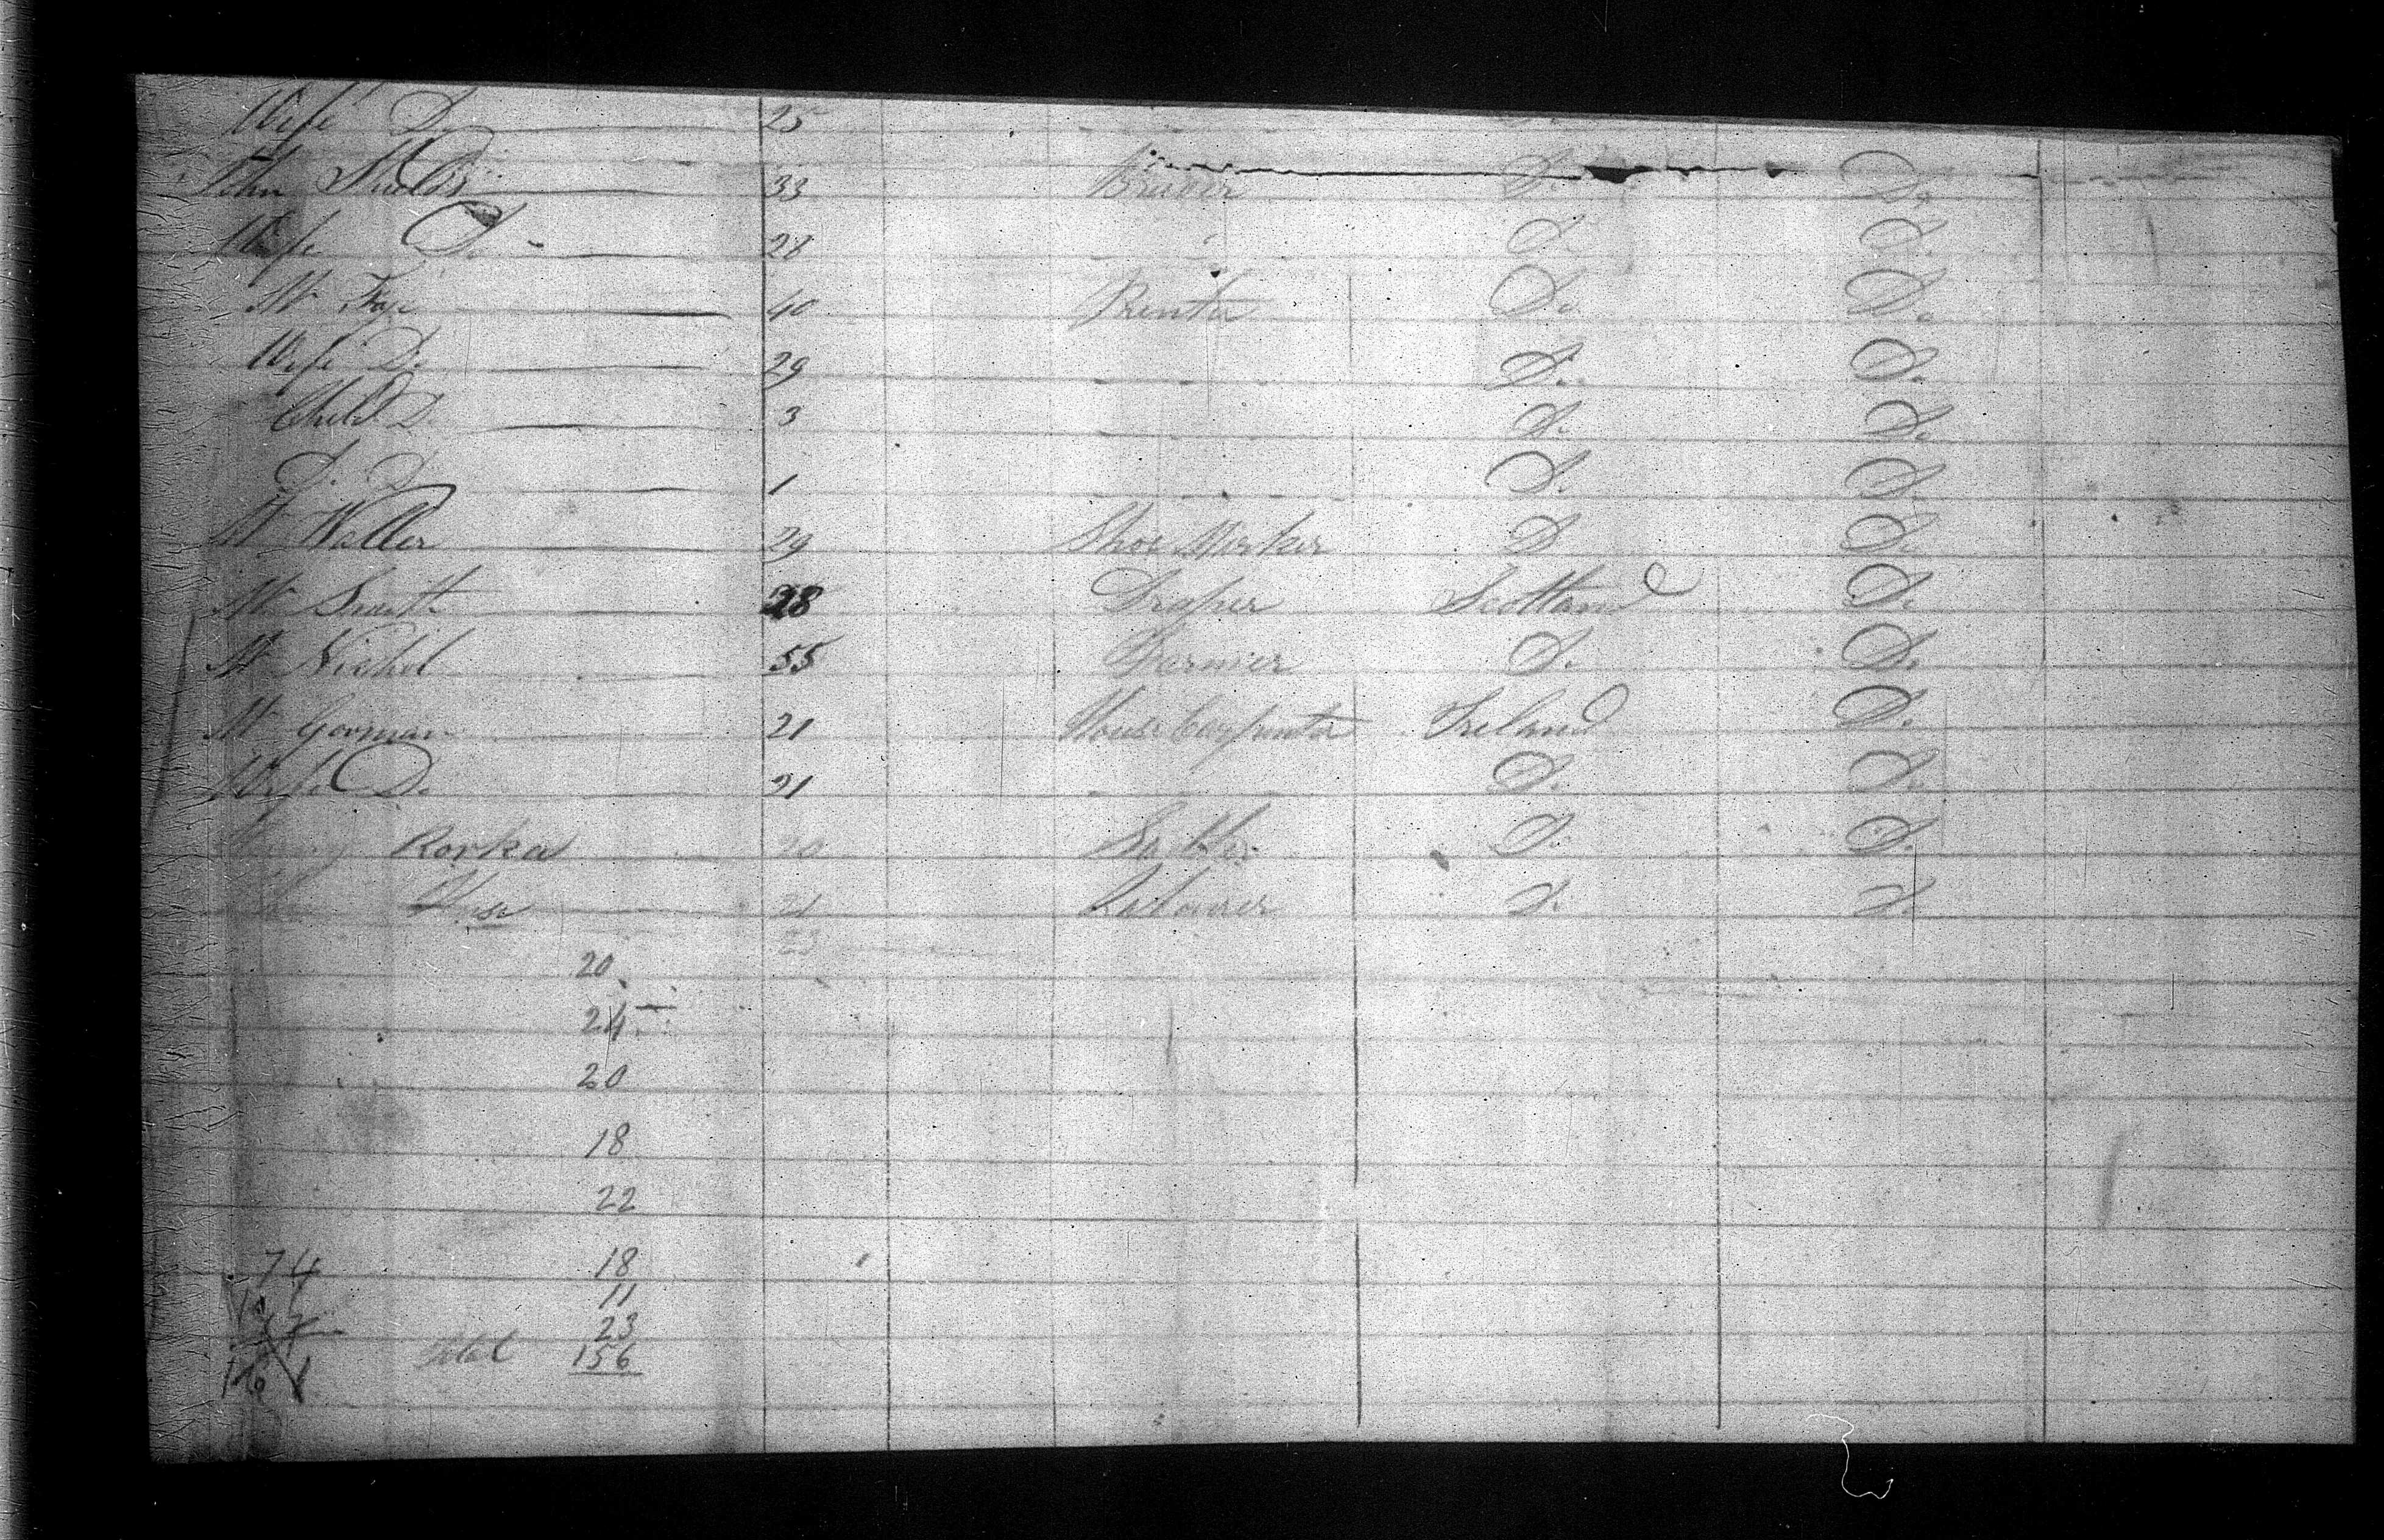 Wife Do 25
John Shields 33 Brewer Do Do
Wife Do - 28 Do Do
Mr Faye 40 Do Do
Wife Do 29 Do Do
Child Do 3 Do Do
Do Do 1 Do Do
Mr Waller 29 Shoe Marker D Do
Mr Smith 28 Draper Scotland Do
Mr Nichol 55 Farmer Do Do
Mr Gorman 21 House Carpenter Ireland Do
Wife Do 21 Do Do
Rorka 20 Do Do
21 Labourer Do Do
23
20
24
20
18
22
74 18
11
23
Total 156